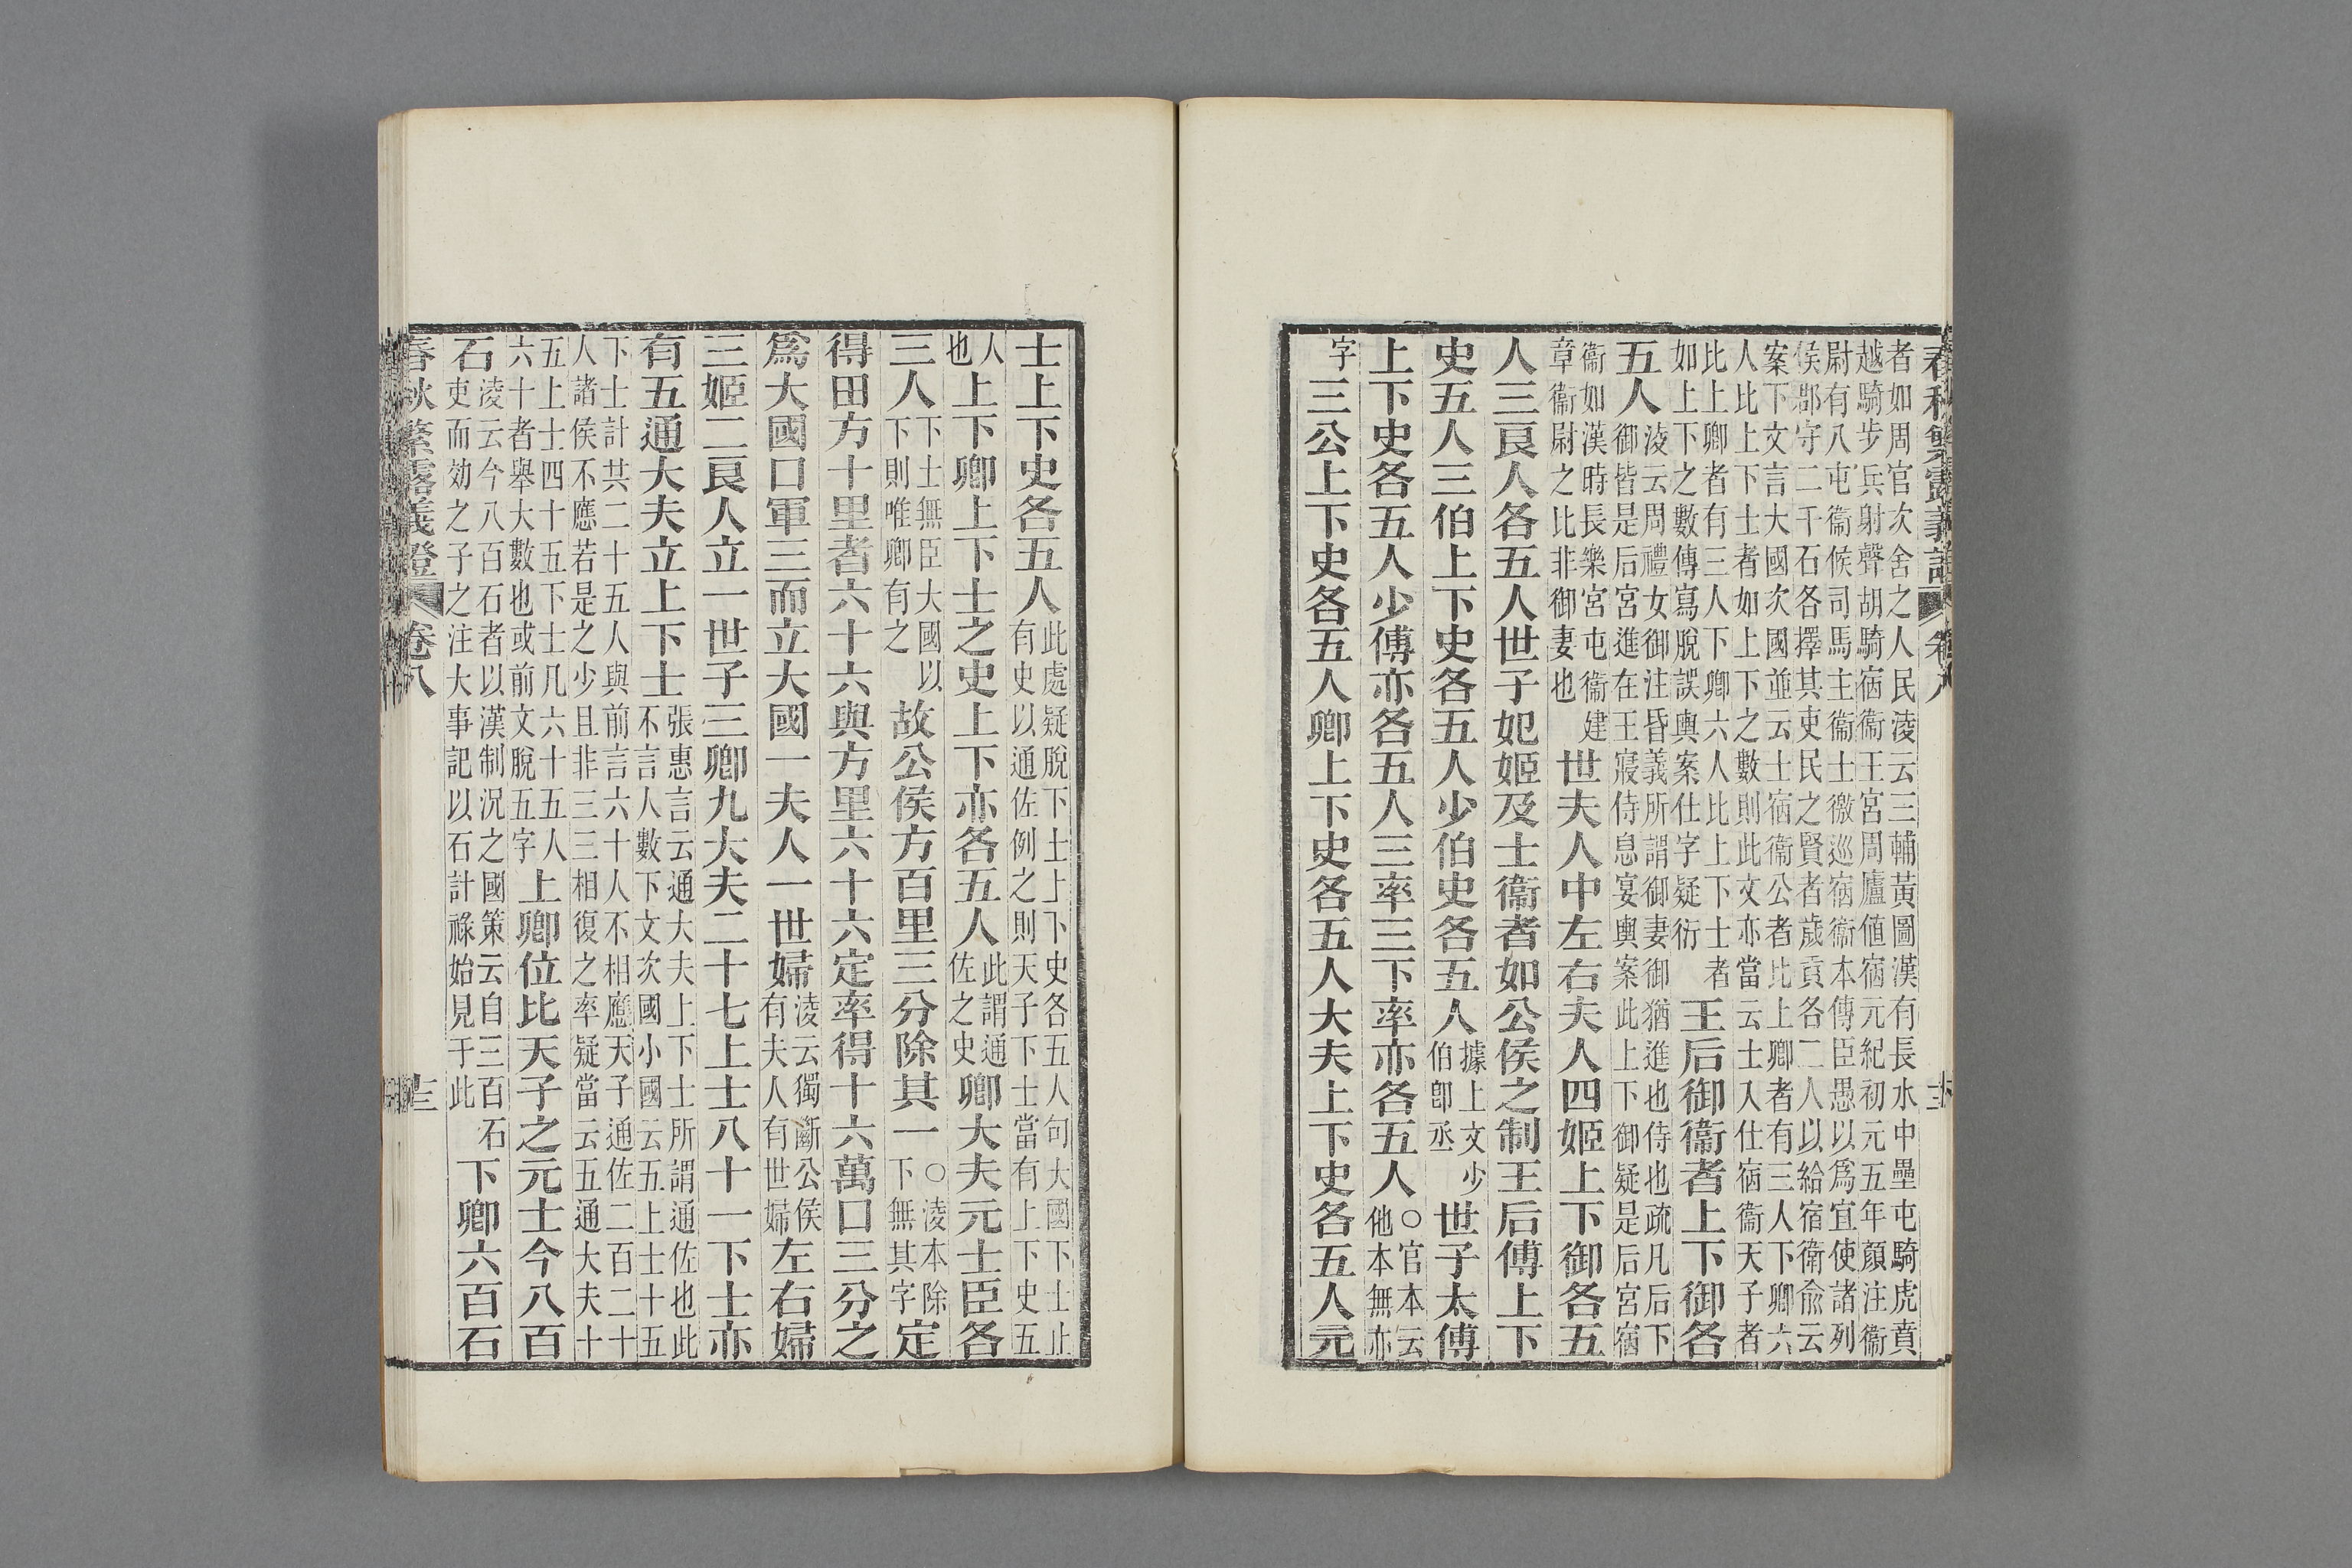 春秋繁露義證 卷八
者如周官次舍之人民淩云三輔黃圖漢有長水中壘屯騎虎賁
越騎步兵射聲胡騎宿衞王宮周廬値宿元紀初元五年顏注衞
尉有八屯衞候司馬主衞士徼巡宿衞本傳臣愚以爲宜使諸列
侯郡守二千石各擇其吏民之賢者歲貢各二人以給宿衞俞云
案下文言大國次國並云士宿衞公者比上卿者有三人下卿六
人比上下士者如上下之數則此文亦當云士入仕宿衞天子者
比上卿者有三人下卿六人比上下士者
如上下之數傳寫脫誤輿案仕字疑衍
王后御衞者上下御各
五人
淩云周禮女御注昏義所謂御妻御猶進也侍也疏凡后下
御皆是后宮進在王寢侍息宴輿案此上下御疑是后宮宿
衞如漢時長樂宮屯衞建
章衞尉之比非御妻也
世夫人中左右夫人四姬上下御各五
人三良人各五人世子妃姬及士衞者如公侯之制王后傅上下
史五人三伯上下史各五人少伯史各五人
據上文少
伯卽丞
世子太傅
上下史各五人少傅亦各五人三率三下率亦各五人
○官本云
他本無亦
字
三公上下史各五人卿上下史各五人大夫上下史各五人元
士上下史各五人
此處疑脫下士上下史各五人句大國下士止
有史以通佐例之則天子下士當有上下史五
人
也
上下卿上下士之史上下亦各五人
此謂通
佐之史
卿大夫元士臣各
三人
下士無臣大國以
下則唯卿有之
故公侯方百里三分除其一
○淩本除
下無其字
定
得田方十里者六十六與方里六十六定率得十六萬口三分之
爲大國口軍三而立大國一夫人一世婦
淩云獨斷公侯
有夫人有世婦
左右婦
三姬二良人立一世子三卿九大夫二十七上士八十一下士亦
有五通大夫立上下士
張惠言云通大夫上下士所謂通佐也此
不言人數下文次國小國云五上士十五
下士計共二十五人與前言六十人不相應天子通佐二百二十
人諸侯不應若是之少且非三三相復之率疑當云五通大夫十
五上士四十五下士凡六十五人
六十者舉大數也或前文脫五字
上卿位比天子之元士今八百
石
淩云今八百石者以漢制況之國策云自三百石
吏而効之子之注大事記以石計祿始見于此
下卿六百石
春秋繁露義證 卷八